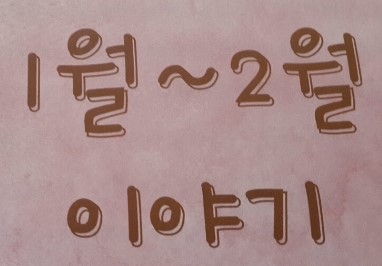 1월~2월
이야기